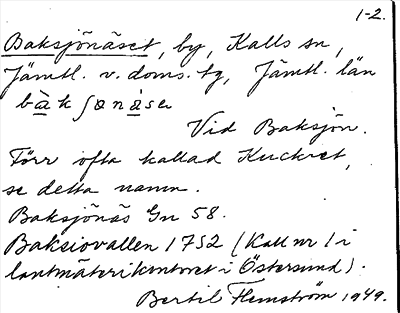 1-2.
Baksjönäset, by, Kalls sn,
Jämtl. v. doms. tg, Jämtl. län
bàkʃənàsɛ
Vid Baksjön.
Förr ofta kallad Kuckret,
se detta namn.
Baksjönäs Gn 58.
Baksiovallen 1752 (Kall nr 1 i
lantmäterikontoret i Östersund).
Bertil Flemström 1949.